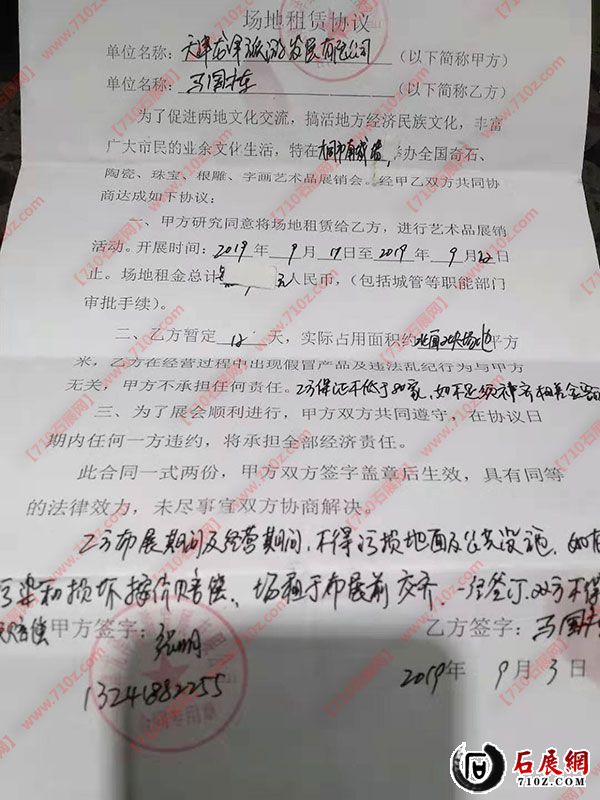 场地租赁协议
单位名称：天津 旅游发展有限公司（以下简称甲方）
单位名称：马国栋（以下简称乙方）
为了促进两地文化交流，搞活地方经济民族文化，丰富
广大市民的业余文化生活，特在大同市南城墙，举办全国奇石、
陶瓷、珠宝、根雕、字画艺术品展销会。经甲乙双方共同协
商达成如下协议：
一、甲方研究同意将场地租赁给乙方，进行艺术品展销
活动。开展时间：2019年9月11日至2019年9月22日
止。场地租金总计 元人民币，（包括城管等职能部门
审批手续）。
二、乙方暂定12天，实际占用面积约 场地平方
米，乙方在经营过程中出现假冒产品及违法乱纪行为与甲方
无关，甲方不承担任何责任。乙方保证不低于80家，如不足须补齐
三、为了展会顺利进行，甲方双方共同遵守，在协议日
期内任何一方违约，将承担全部经济责任。
此合同一式两份，甲方双方签字盖章后生效，具有同等
的法律效力，未尽事宜双方协商解决。
乙方布展期间及经营期间，不得污损地面及公共设施，如有
污染和损坏按价赔偿、场租于布展前交齐，一经签订，双方不得
赔偿
甲方签字：张明
乙方签字：马国栋
13241882255
2019年9月3日
合同专用章
石展網
710Z.COM
【710石展网】
www.710z.com